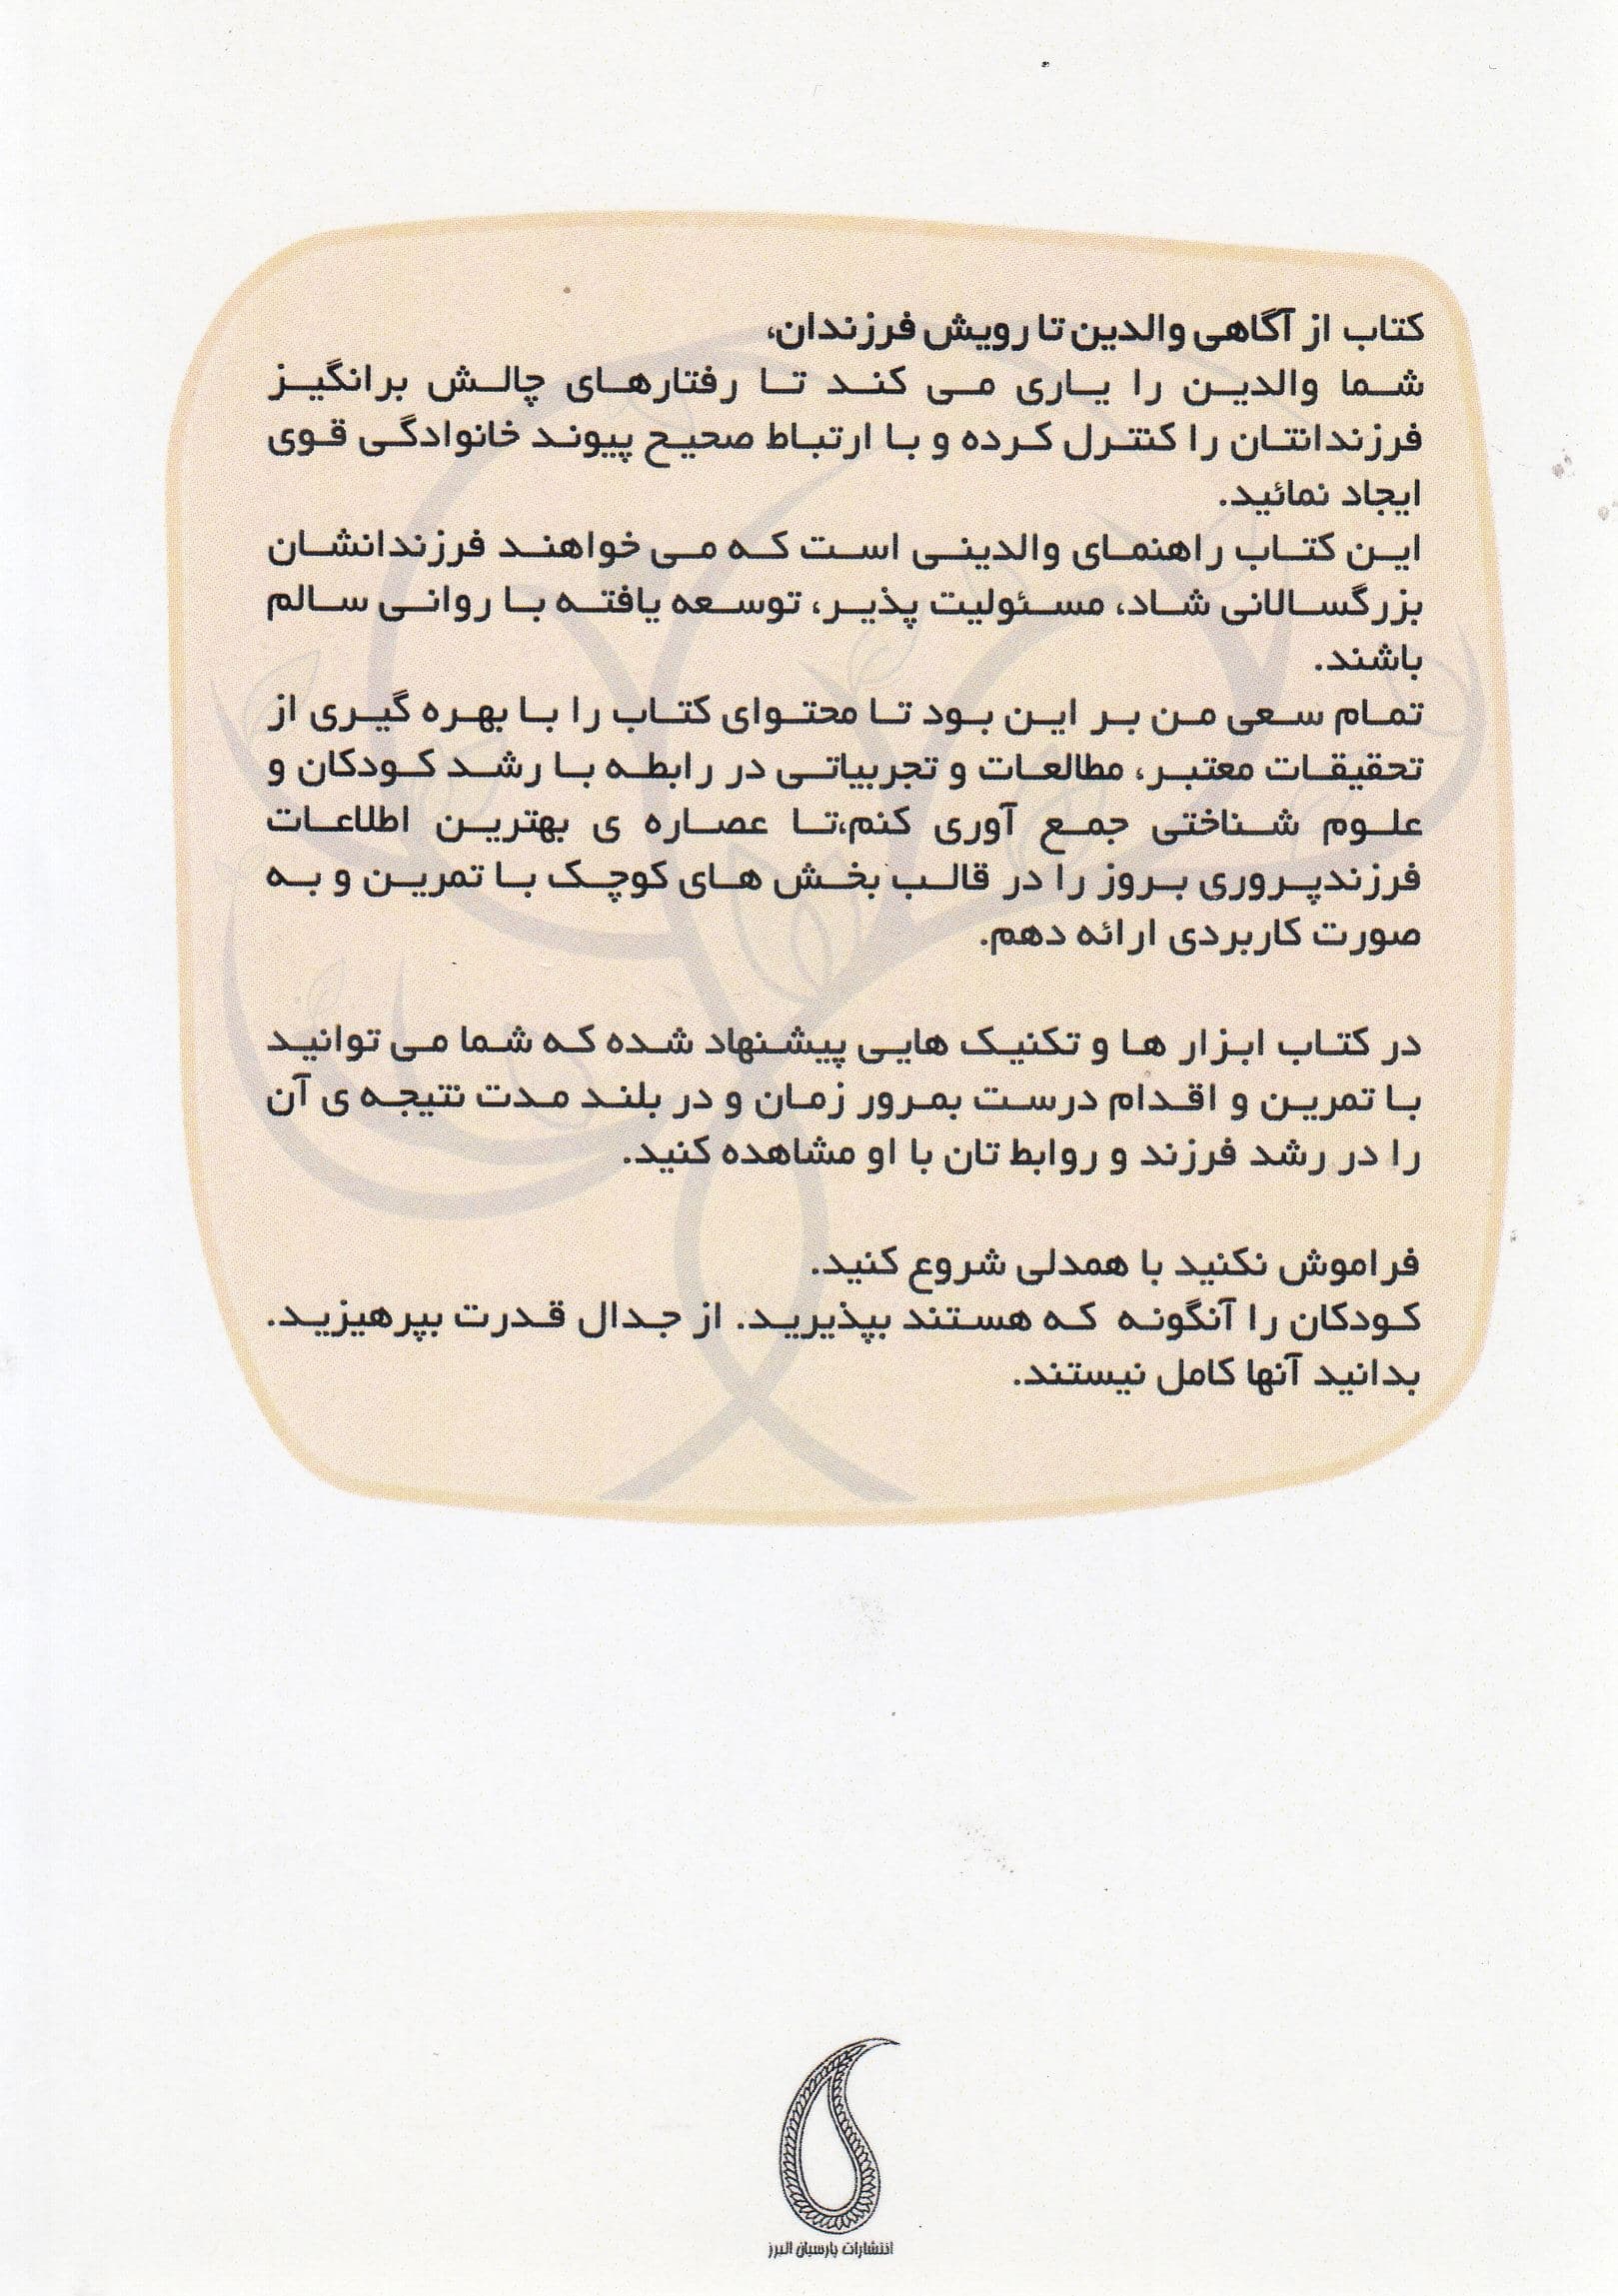 کتاب از آگاهی والدین تا رویش فرزندان،
شما والدین را یاری می کند تا رفتارهای چالش برانگیز
فرزندانتان را کنترل کرده و با ارتباط صحیح پیوند خانوادگی قوی
ایجاد نمائید.
این کتاب راهنمای والدینی است که می خواهند فرزندانشان
بزرگسالانی شاد، مسئولیت پذیر، توسعه یافته با روانی سالم
باشند.
تمام سعی من بر این بود تا محتوای کتاب را با بهره گیری از
تحقیقات معتبر، مطالعات و تجربیاتی در رابطه با رشد کودکان و
علوم شناختی جمع آوری کنم،تا عصاره ی بهترین اطلاعات
فرزندپروری بروز را در قالب بخش های کوچک با تمرین و به
صورت کاربردی ارائه دهم.
در کتاب ابزار ها و تکنیک هایی پیشنهاد شده که شما می توانید
با تمرین و اقدام درست بمرور زمان و در بلند مدت نتیجه ی آن
را در رشد فرزند و روابط تان با او مشاهده کنید.
فراموش نکنید با همدلی شروع کنید.
کودکان را آنگونه که هستند بپذیرید. از جدال قدرت بپرهیزید.
بدانید آنها کامل نیستند.
انتشارات پارسیان البرز